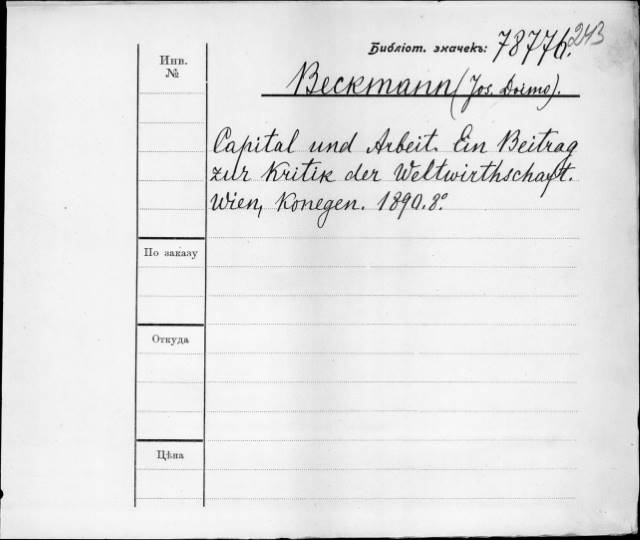 Библіот. значекъ: 78776. 243
Инв.
№
Beckmann (Jos. Doimo).
Capital und Arbeit. Ein Beitrag
zur Kritik der Weltwirthschaft.
Wien, Konegen. 1890. 8°.
По заказу
Откуда
Цѣна